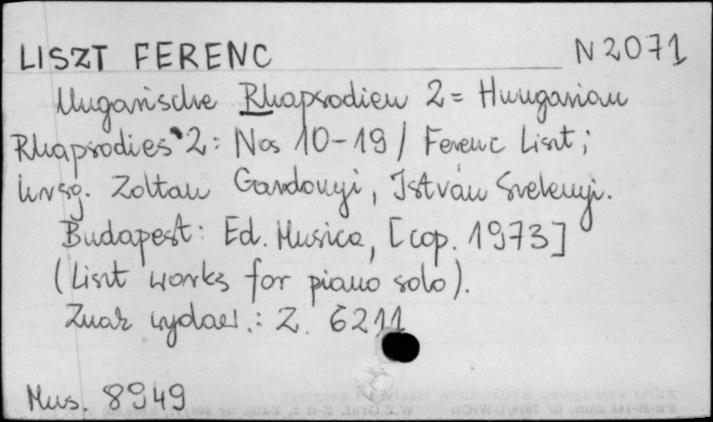 LISZT FERENC N 2071
Ungarische Rhapsodien 2 = Hungarian
Rhapsodies 2: Nos 10-19 / Ferenc Liszt;
hrsg. Zoltan Gardonyi, István Szelenyi.
Budapest: Ed. Musica, [cop. 1973]
(Liszt works for piano solo).
Znak wydaw.: Z. 6211
Mus. 8949